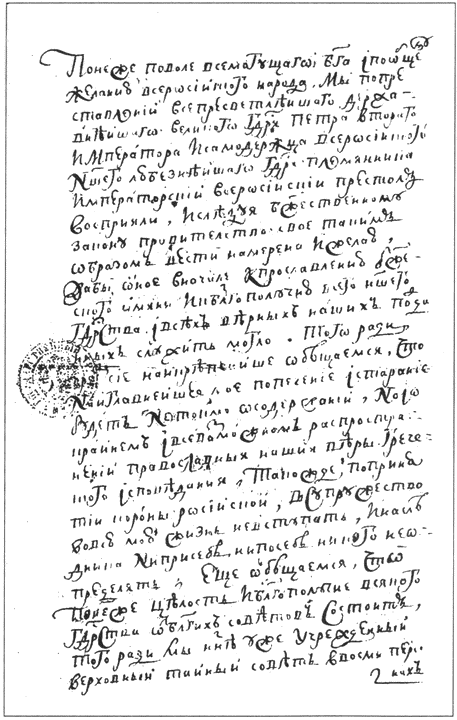 Понеже поволе всемогущагѡ бг҃а іпоѡбще
желанию всеросиискогѡ народа, Мы попре
ставлениі всепресветлѣишагѡ Держа-
внѣишагѡ великого Гдр҃ѧ Петра второго
Императора Исамодержца Всеросииского
Ншего любезнѣишаго Гдр҃ѧ племянника
Императорскиі всеросискиі престолъ
восприяли, Ислѣдуя бжественному
закону правителство свое такимъ
ѡбразомъ вести намерена Ижелаю,
Дабы ѡное вначале кпрославлению бже-
ского имяни Иблг҃ополучию всего ншего
Гдрства івсѣхъ вѣрныхъ нашихъ подда
нныхъ служить могло. Того ради
сие наикрѣпчаише ѡбещаемся, что
Наиглавнейшее мое попечение істарание
будетъ Нетокмо ѡсодержаниі, Ноіѡ
краинемъ івсевозможномъ распростра
нениі православныя нашия вѣры Грече-
ского ісповѣдания, Такожде, поприня
тиі короны росиискоі, Всупружество
вовсю мою жизнь невступать, Инаслѣ
дника Ниприсебѣ нипосебѣ никого неѡ-
пределять. Еще ѡбещаемся, что
Понеже цѣлость Иблг҃ополучие всякого
Гдр҃ства ѿблг҃ихъ совѣтовъ Состоитъ,
того ради Мы нн҃ѣ уже Учрежденныи
верховныи таиныи совѣтъ ввосми пері-